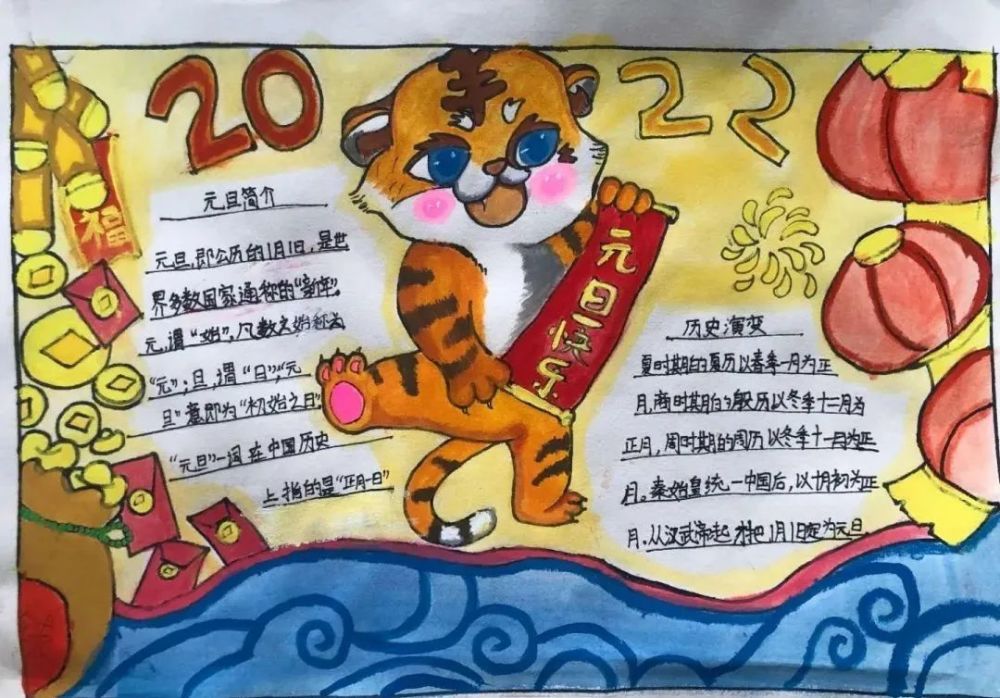 2022
福
元旦快乐
元旦简介
元旦,即公历的1月1日,是世
界多数国家通称的“新年”。
元,谓“始”,凡数之始称为
“元”;旦,谓“日”;“元
旦”意即为“初始之日”
“元旦”一词在中国历史
上指的是“正月一日”
历史演变
夏时期的夏历以春季一月为正
月,商时期的殷历以冬季十二月为
正月,周时期的周历以冬季十一月为正
月。秦始皇统一中国后,以十月初为正
月,从汉武帝起才把1月1日定为元旦